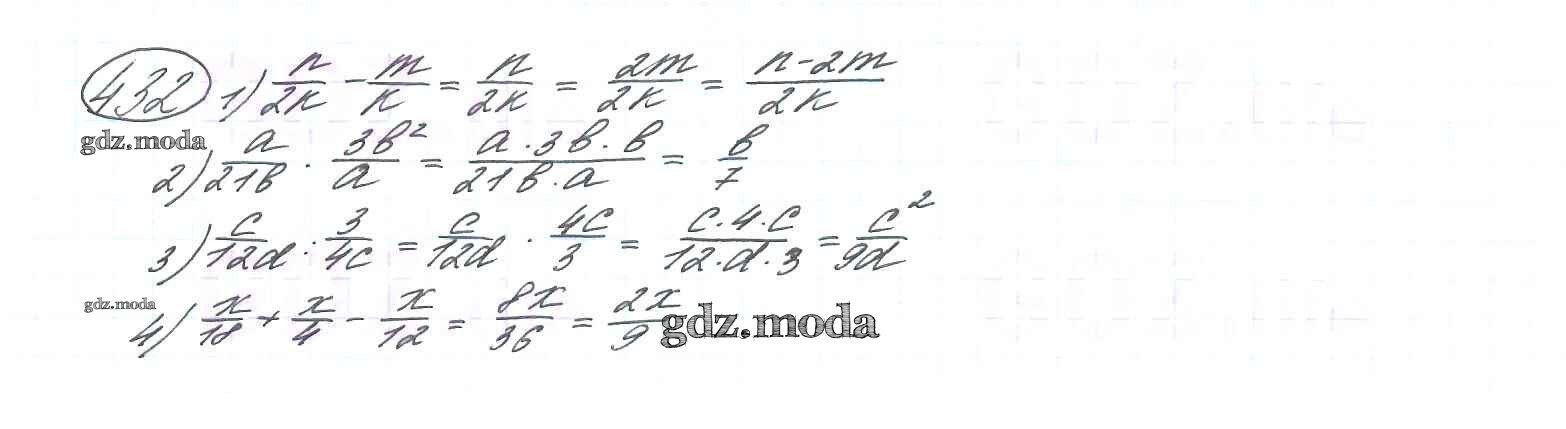 432 1) n/2k - m/k = n/2k = 2m/2k = n-2m/2k
gdz.moda
2) a/21b · 3b²/a = a·3b·b/21b·a = b/7
3) c/12d : 3/4c = c/12d · 4c/3 = c·4·c/12·d·3 = c²/9d
gdz.moda
4) x/18 + x/4 - x/12 = 8x/36 = 2x/9
gdz.moda